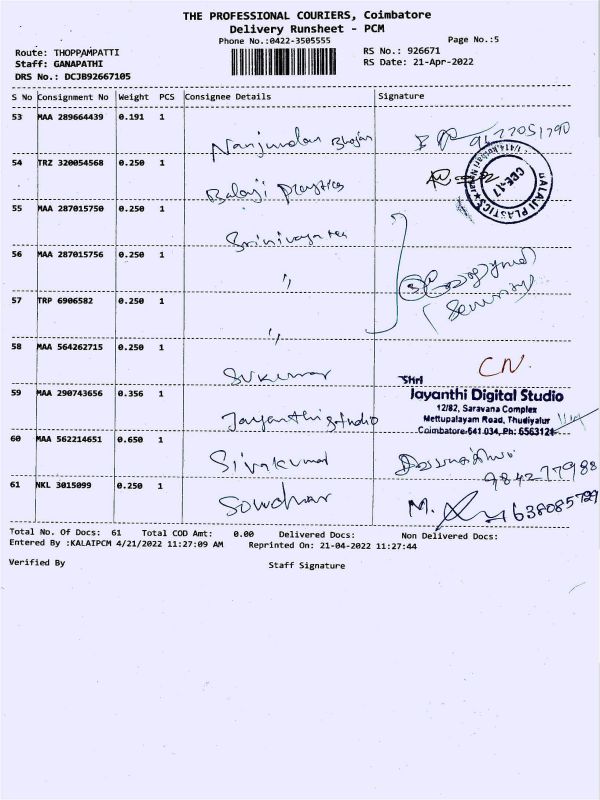 THE PROFESSIONAL COURIERS, Coimbatore
Delivery Runsheet - PCM
Phone No.:0422-3505555
Page No.:5
Route: THOPPAMPATTI
RS No.: 926671
Staff: GANAPATHI
RS Date: 21-Apr-2022
DRS No.: DCJB92667105
S No Consignment No Weight PCS Consignee Details Signature
53 MAA 289664439 0.191 1
Nanjundan
54 TRZ 320054568 0.250 1
Balaji Plastics
BALAJI PLASTICS
CBE-17
55 MAA 287015750 0.250 1
56 MAA 287015756 0.250 1
"
3
57 TRP 6906582 0.250 1
"
58 MAA 564262715 0.250 1
Sukumar
CN.
59 MAA 290743656 0.356 1
Jayanthi studio
Shri
Jayanthi Digital Studio
12/82, Saravana Complex
Mettupalayam Road, Thudiyalur
Coimbatore-641 034, Ph: 6563121
60 MAA 562214651 0.650 1
Sivakumar
61 NKL 3015099 0.250 1
M.
Total No. Of Docs: 61 Total COD Amt: 0.00 Delivered Docs: Non Delivered Docs:
Entered By :KALAIPCM 4/21/2022 11:27:09 AM Reprinted On: 21-04-2022 11:27:44
Verified By
Staff Signature